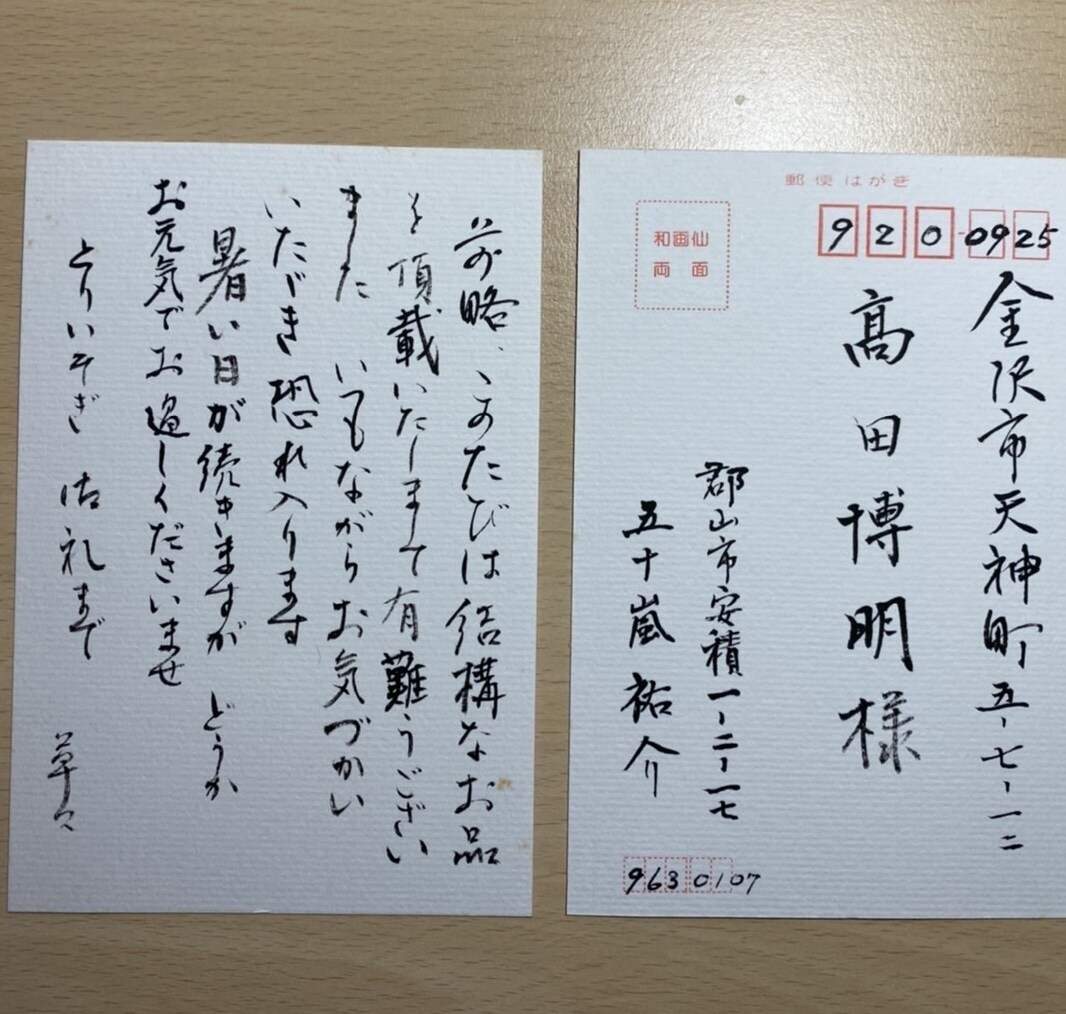 前略、このたびは結構なお品
を頂載いたしまして有難うござい
ました いつもながらお気づかい
いただき恐れ入ります
暑い日が続きますが どうか
お元気でお過しくださいませ
とりいそぎ 御礼まで
草々
郵便はがき
和画仙
両面
920-0925
金沢市天神町五-七-一二
髙田博明様
郡山市安積一-二-一七
五十嵐祐介
9630107